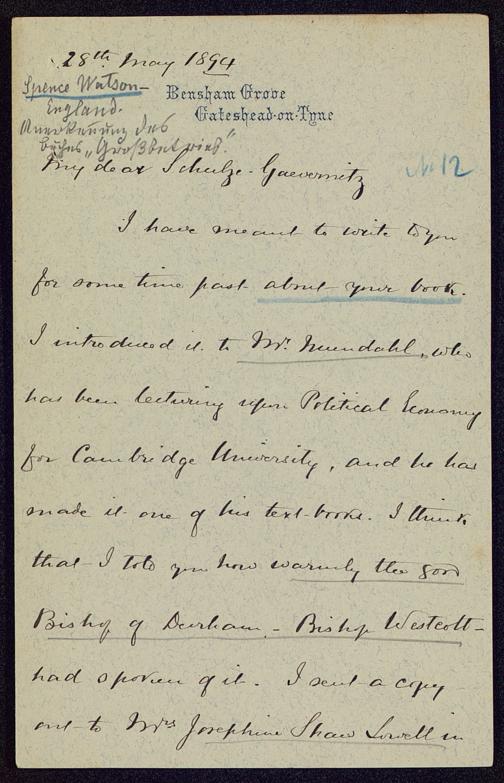 28th May 1894
Spence Watson -
England.
Anerkennung des
Buches "Großbetrieb".
Bensham Grove
Gateshead-on-Tyne
No 12
My dear Schulze-Gaevernitz
I have meant to write to you
for some time past about your book.
I introduced it to Mr. Mundahl, who
has been lecturing upon Political Economy
for Cambridge University, and he has
made it one of his text-books. I think
that I told you how warmly the good
Bishop of Durham - Bishop Westcott -
had spoken of it. I sent a copy
out to Mrs Josephine Shaw Lowell in